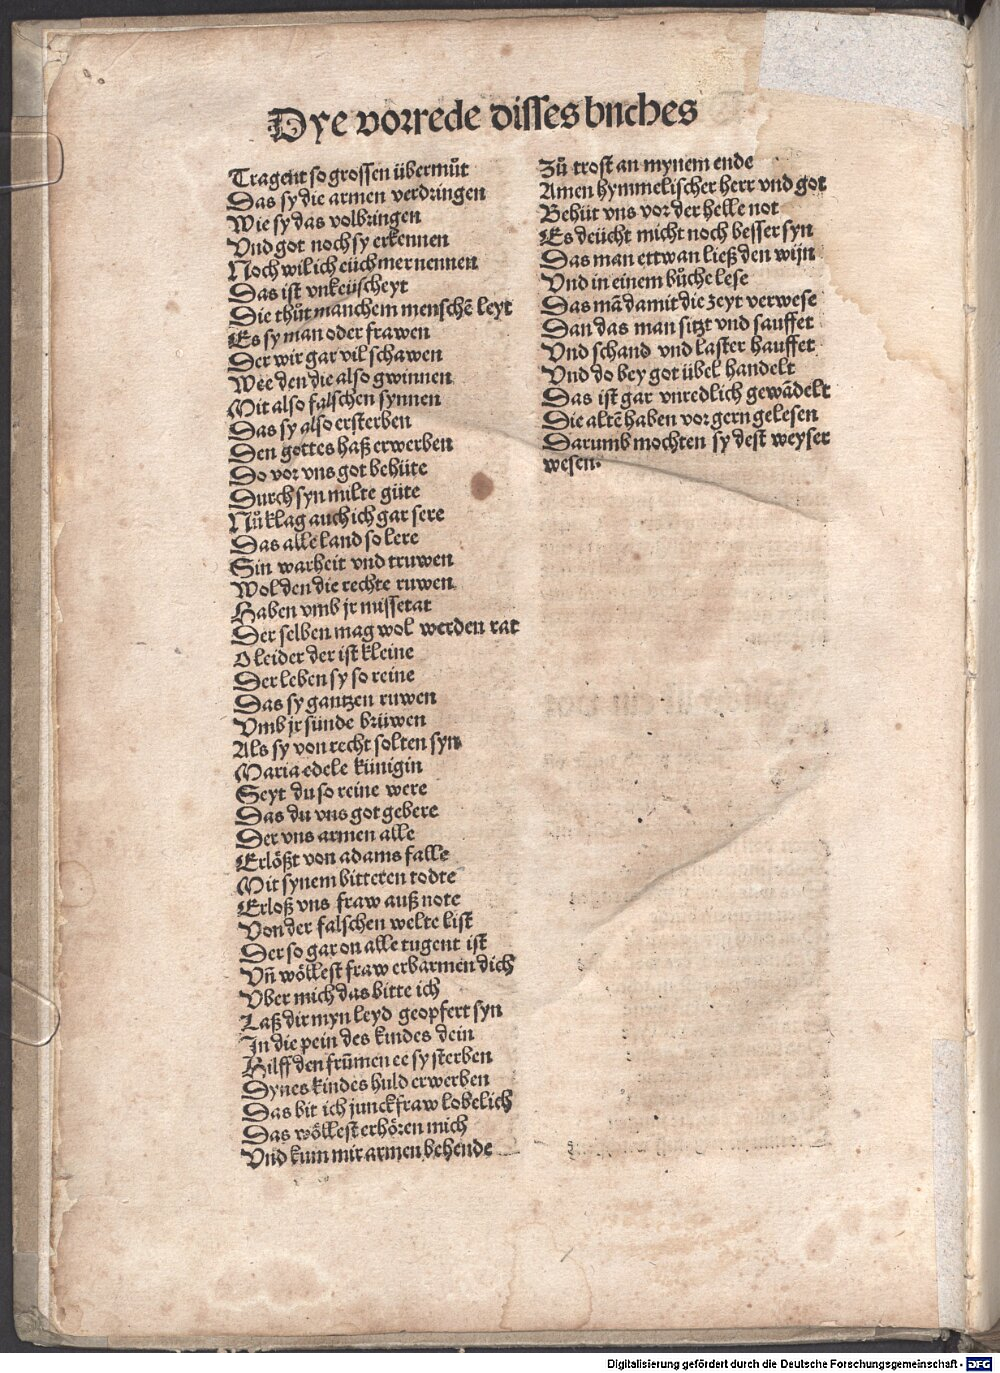 Dye vorrede disses bnches
Tragent so grossen übermůt
Das sy die armen verdringen
Wie sy das volbringen
Vnd got noch sy erkennen
Noch wil ich eüch mer nennen
Das ist vnkeüscheyt
Die thůt manchem menschē leyt
Es sy man oder frawen
Der wir gar vil schawen
Wee den die also gwinnen
Mit also falschen synnen
Das sy also ersterben
Den gottes haß erwerben
Do vor vns got behüte
Durch syn milte güte
Nů klag auch ich gar sere
Das alle land so lere
Sin warheit vnd truwen
Wol den die rechte ruwen
Haben vmb jr missetat
Der selben mag wol werden rat
O leider der ist kleine
Der leben sy so reine
Das sy gantzen ruwen
Vmb jr sünde brüwen
Als sy von recht solten syn
Maria edele künigin
Seyt du so reine were
Das du vns got gebere
Der vns armen alle
Erlößt von adams falle
Mit synem bitteren todte
Erloß vns fraw auß note
Von der falschen welte list
Der so gar on alle tugent ist
Vn̄ wöllest fraw erbarmen dich
Vber mich das bitte ich
Laß dir myn leyd geopfert syn
In die pein des kindes dein
Hilff den frūmen ee sy sterben
Dynes kindes huld erwerben
Das bit ich junckfraw lobelich
Das wöllest erhören mich
Vnd kum mir armen behende
Zů trost an mynem ende
Amen hymmelischer herr vnd got
Behüt vns vor der helle not
Es deücht micht noch besser syn
Das man ettwan ließ den wijn
Vnd in einem bůche lese
Das mā damit die zeyt verwese
Dan das man sitzt vnd sauffet
Vnd schand vnd laster hauffet
Vnd do bey got übel handelt
Das ist gar vnredlich gewādelt
Die altē haben vor gern gelesen
Darumb mochten sy dest weyser
wesen.
Digitalisierung gefördert durch die Deutsche Forschungsgemeinschaft - DFG